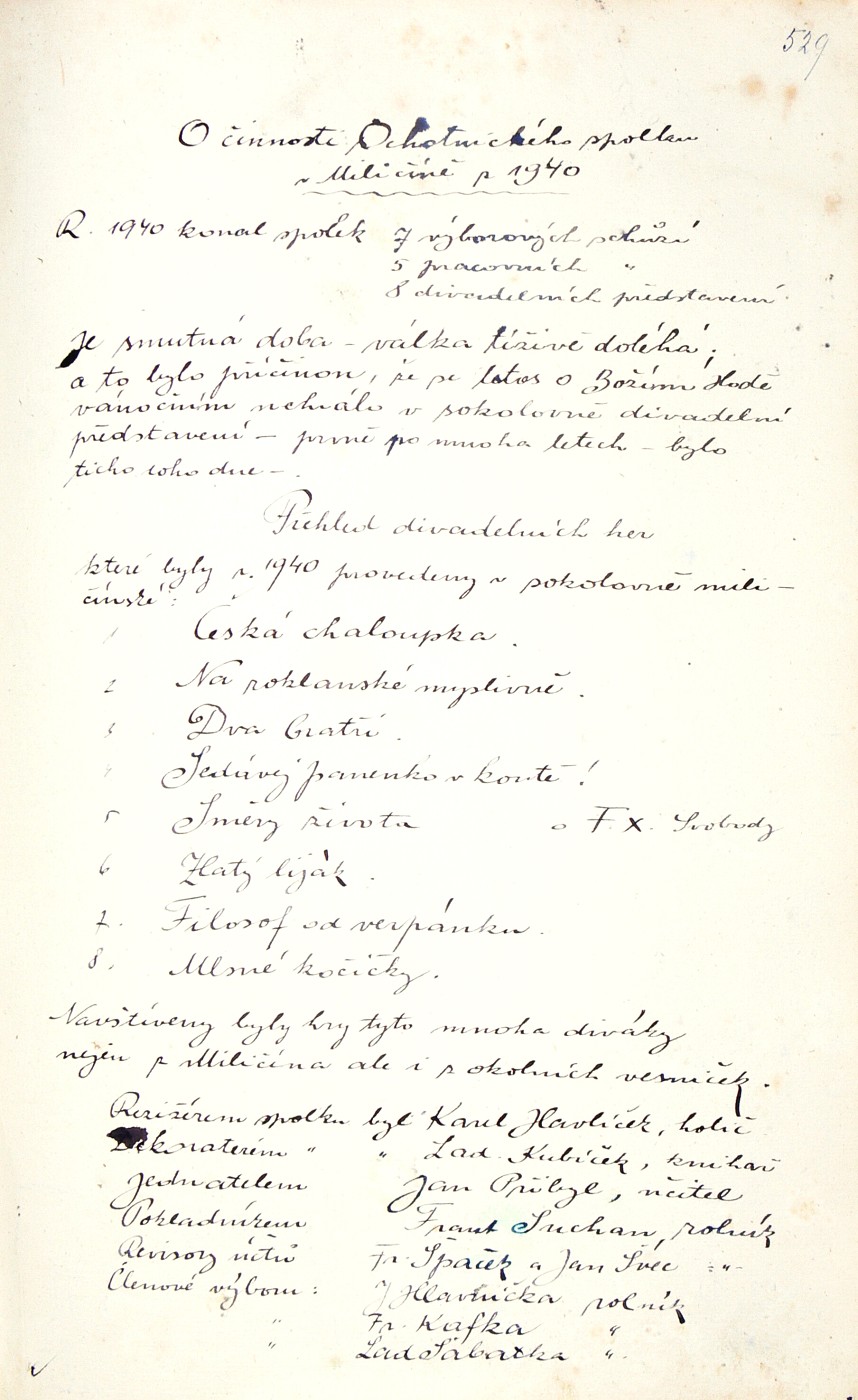 529
O činnosti Ochotnického spolku
v Miličíně r 1940
R. 1940 konal spolek 7 výborových schůzí
5 pracovních "
8 divadelních představení
Je smutná doba – válka tíživě doléhá;
a to bylo příčinou, že se letos o Božím Hodě
vánočním nehrálo v sokolovně divadelní
představení – prvně po mnoha letech – bylo
ticho toho dne – .
Přehled divadelních her
které byly r. 1940 provedeny v sokolovně mili–
čínské:
1 Česká chaloupka .
2 Na roklanské myslivně .
3 Dva bratři .
4 Sedávej panenko v koutě !
5 Směry života o F. X. Svobody
6 Zlatý liják .
7. Filosof od verpánku .
8. Mlsné kočičky .
Navštíveny byly hry tyto mnoha diváky
nejen z Miličína ale i z okolních vesniček .
Režisérem spolku byl Karel Havlíček, holič
Dekoratérem " " Lad. Kubíček, knihař
Jednatelem Jan Přibyl, učitel
Pokladníkem Frant Suchan, rolník
Revisory účtů Fr. Špaček a Jan Švec "
Členové výboru: J Hlavnička rolník
" Fr. Kafka "
" Lad Sabatka "